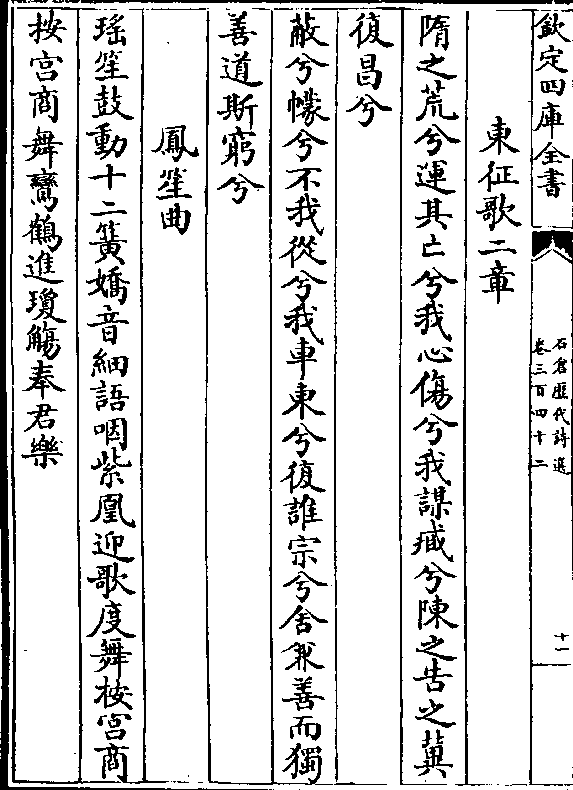 欽定四庫全書
石倉歷代詩選
卷三百四十二
十一
東征歌二章
隋之荒兮運其亡兮我心傷兮我謀臧兮陳之告之冀
復昌兮
蔽兮幪兮不我從兮我車東兮復誰宗兮舍兼善而獨
善道斯窮兮
鳳笙曲
瑤笙鼓動十二簧嬌音細語咽紫凰迎歌度舞按宮商
按宮商舞鸞鶴進瓊觴奉君樂